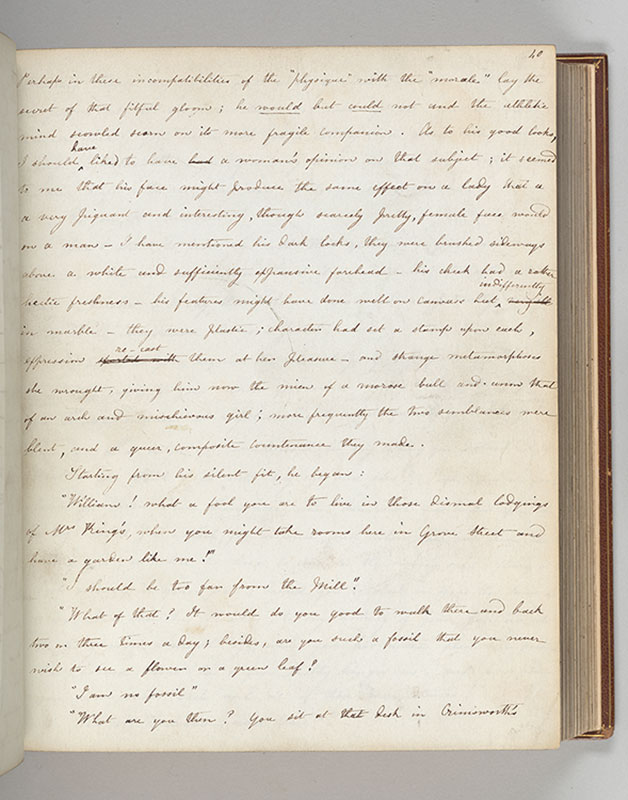 40
Perhaps in these incompatibilities of the "physique" with the "morale" lay the
secret of that fitful gloom; he would but could not and the athletic
mind scowled scorn on its more fragile companion. As to his good looks,
have
I should liked to have had a woman's opinion on that subject; it seemed
to me that his face might produce the same effect on a lady that a
a very piquant and interesting, though scarcely pretty, female face would
on a man – I have mentioned his dark locks, they were brushed sideways
above a white and sufficiently expansive forehead – his cheek had a rather
indifferently
hectic freshness – his features might have done well on canvass but
in marble – they were plastic; character had set a stamp upon each,
re-cast
expression them at her pleasure – and strange metamorphoses
she wrought, giving him now the mien of a morose bull and anon that
of an arch and mischievous girl; more frequently the two semblances were
blent, and a queer, composite countenance they made.
Starting from his silent fit, he began:
"William! what a fool you are to live in those dismal lodgings
of Mrs King's, when you might take rooms here in Grove Street and
have a garden like me!"
"I should be too far from the Mill".
"What of that? It would do you good to walk there and back
two or three times a day; besides, are you such a fossil that you never
wish to see a flower or a green leaf?
"I am no fossil"
"What are you then? you sit at that desk in Crimsworth's